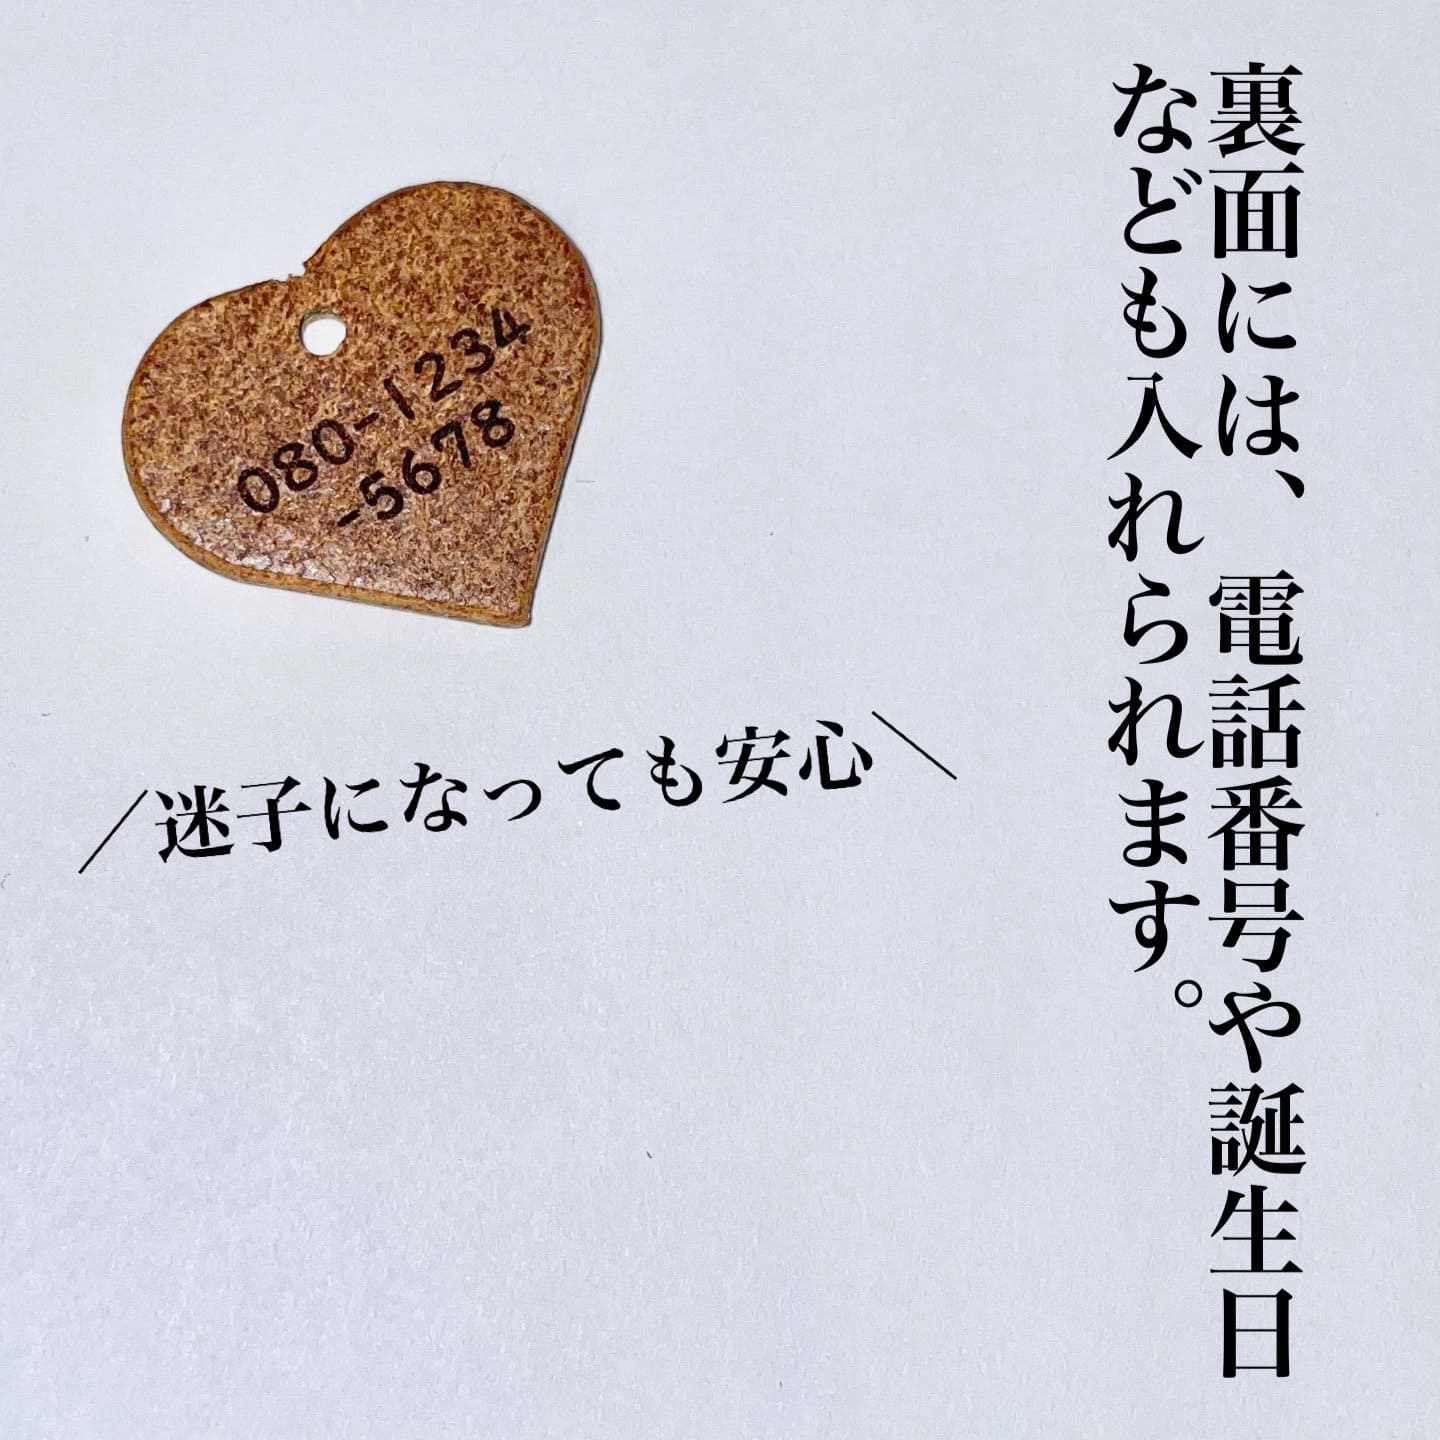 裏面には、電話番号や誕生日
なども入れられます。
080-1234
-5678
／迷子になっても安心＼